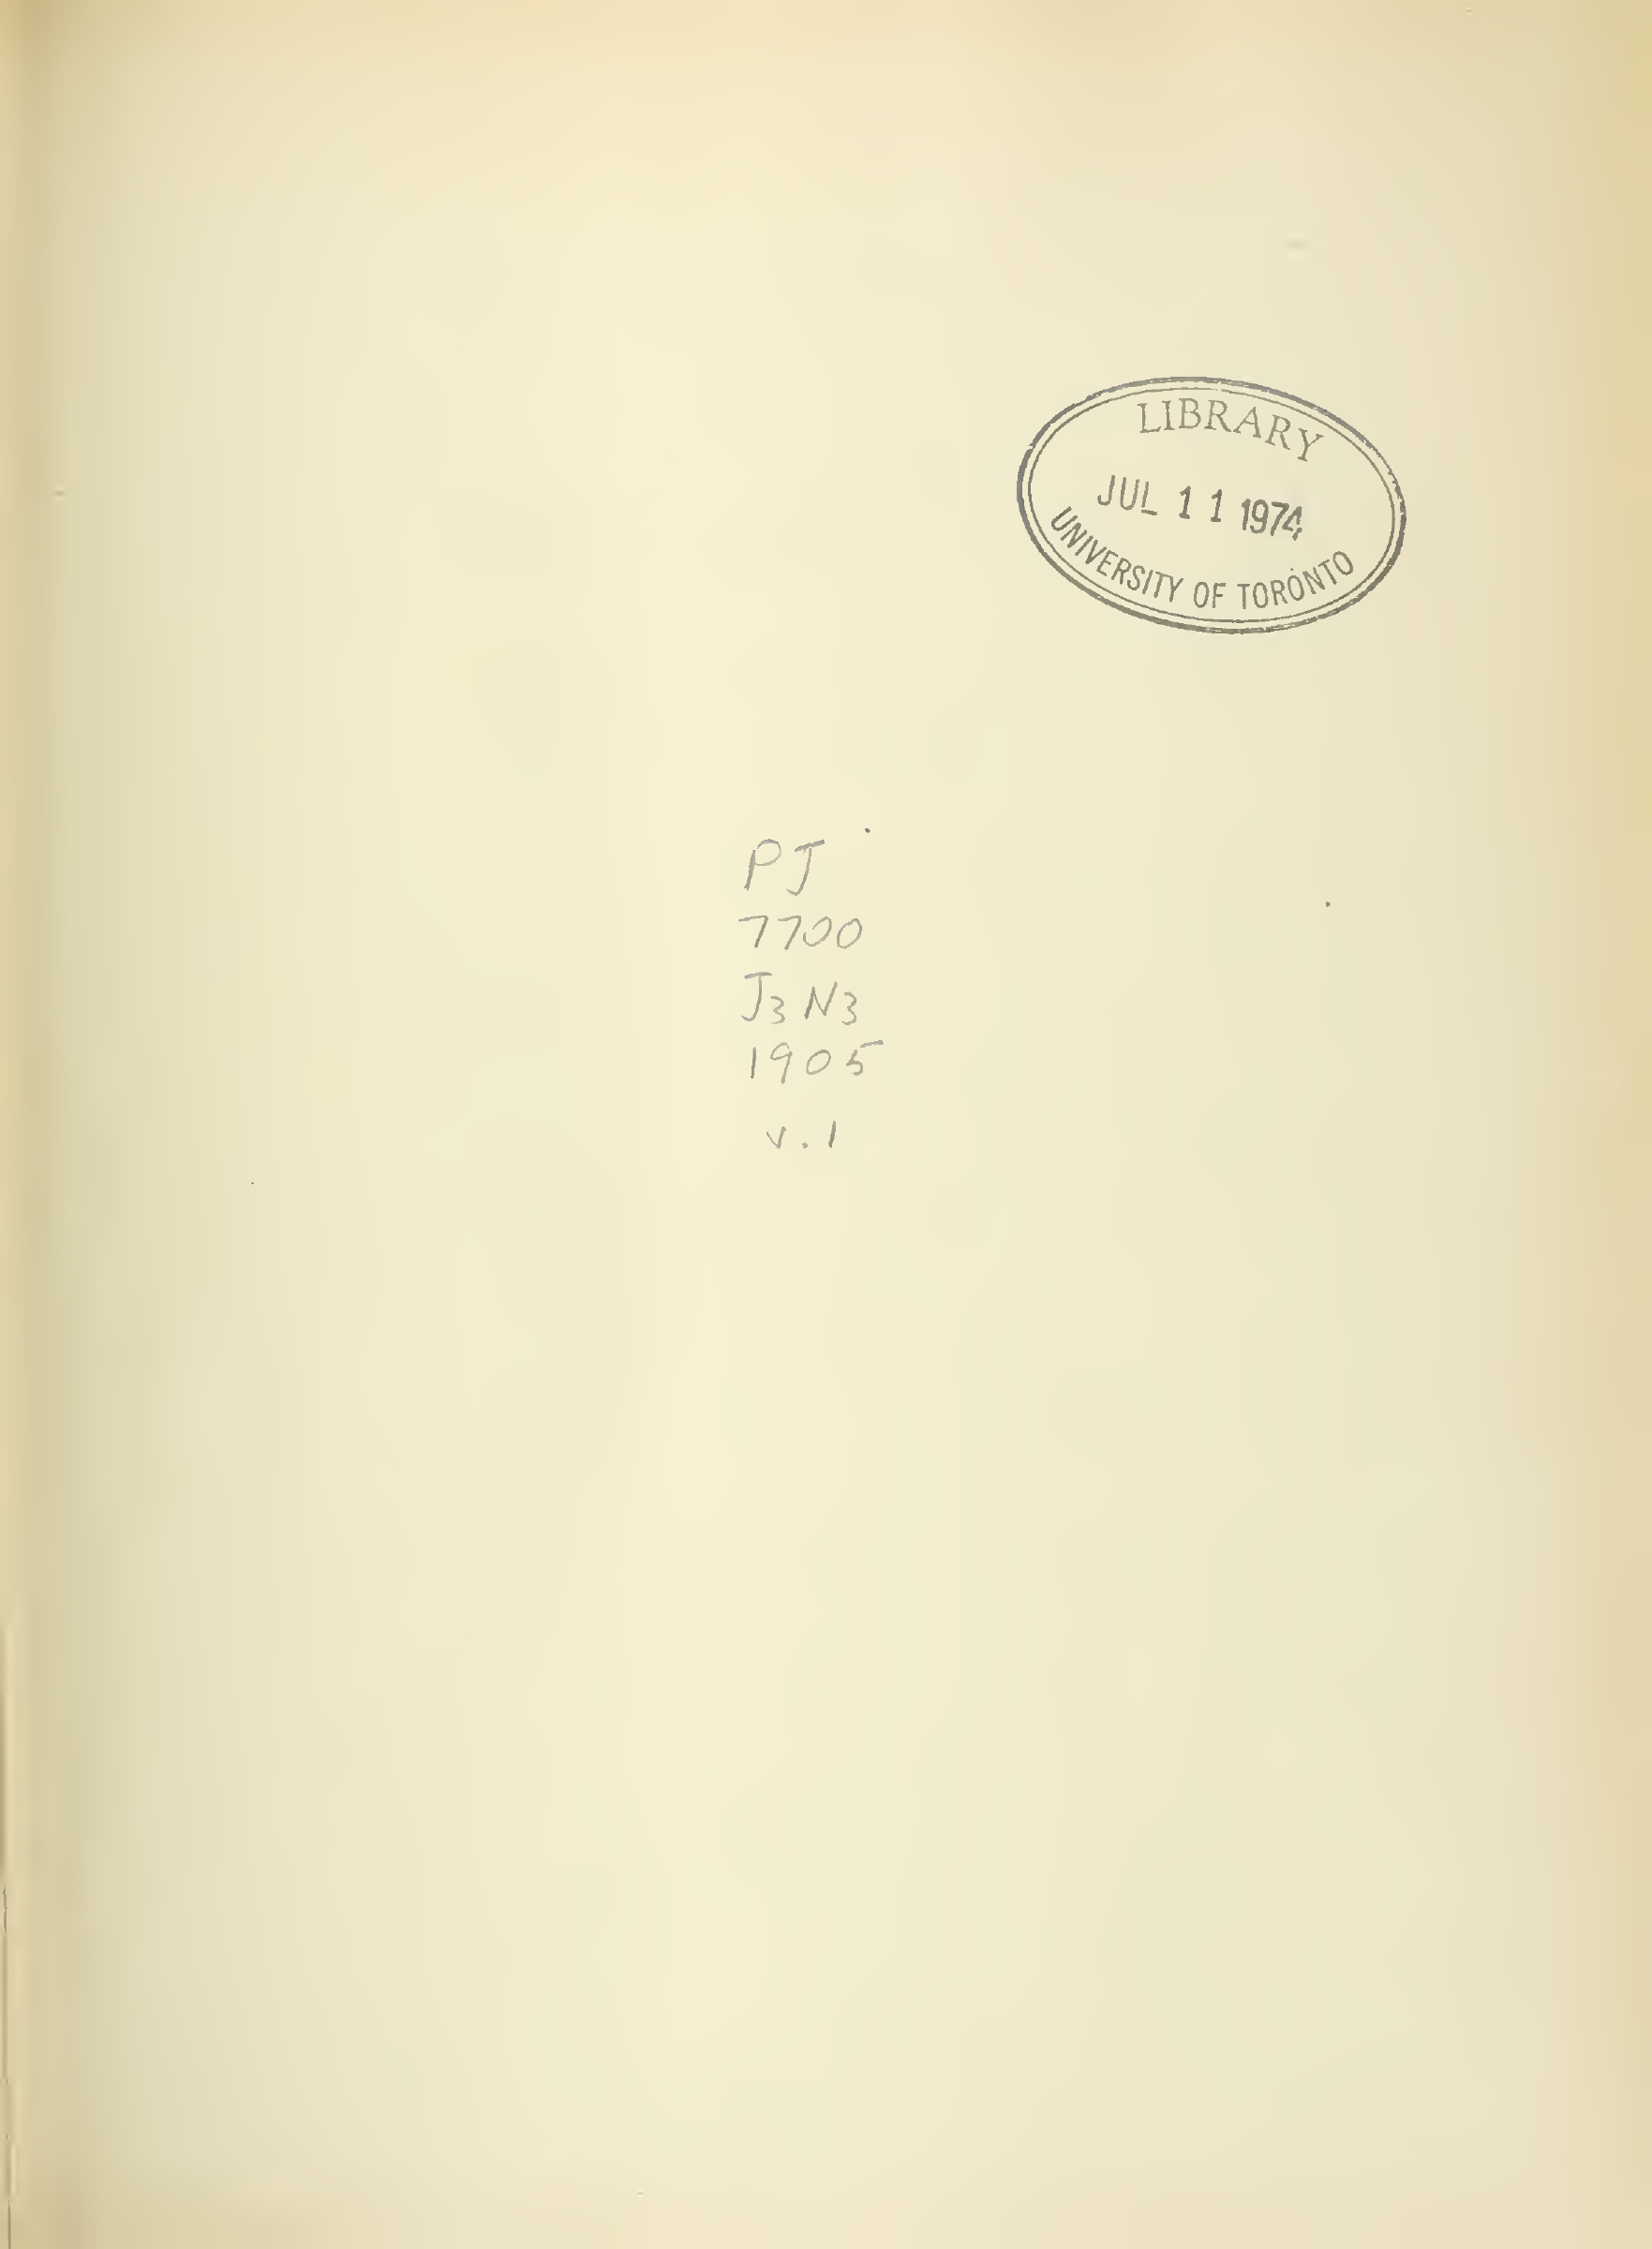 LIBRARY
JUL 11 1974
UNIVERSITY OF TORONTO
PJ
7700
J3N3
1905
v.1